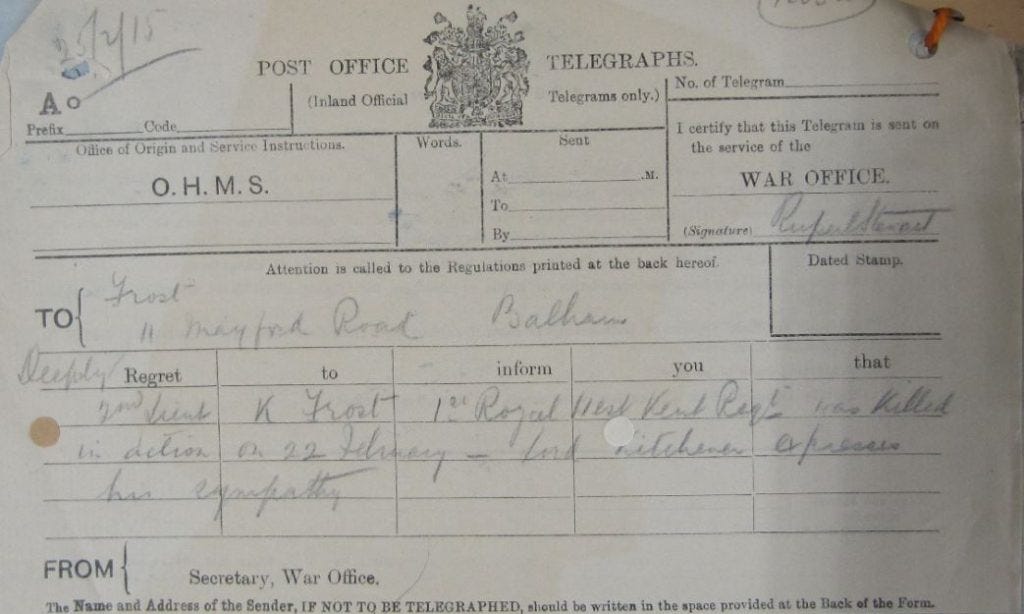 25/2/15
POST OFFICE TELEGRAPHS.
(Inland Official Telegrams only.)
No. of Telegram
A o
Prefix Code
Office of Origin and Service Instructions.
O. H. M. S.
Words.
Sent
At .M.
To
By
I certify that this Telegram is sent on
the service of the
WAR OFFICE.
(Signature) Rupert Stewart
Attention is called to the Regulations printed at the back hereof.
Dated Stamp.
TO
Frost
11 Mayford Road Balham
Deeply Regret to inform you that
2nd Lieut K Frost 1st Royal West Kent Regt was killed
in action on 22 February – Lord Kitchener expresses
his sympathy
FROM
Secretary, War Office.
The Name and Address of the Sender, IF NOT TO BE TELEGRAPHED, should be written in the space provided at the Back of the Form.